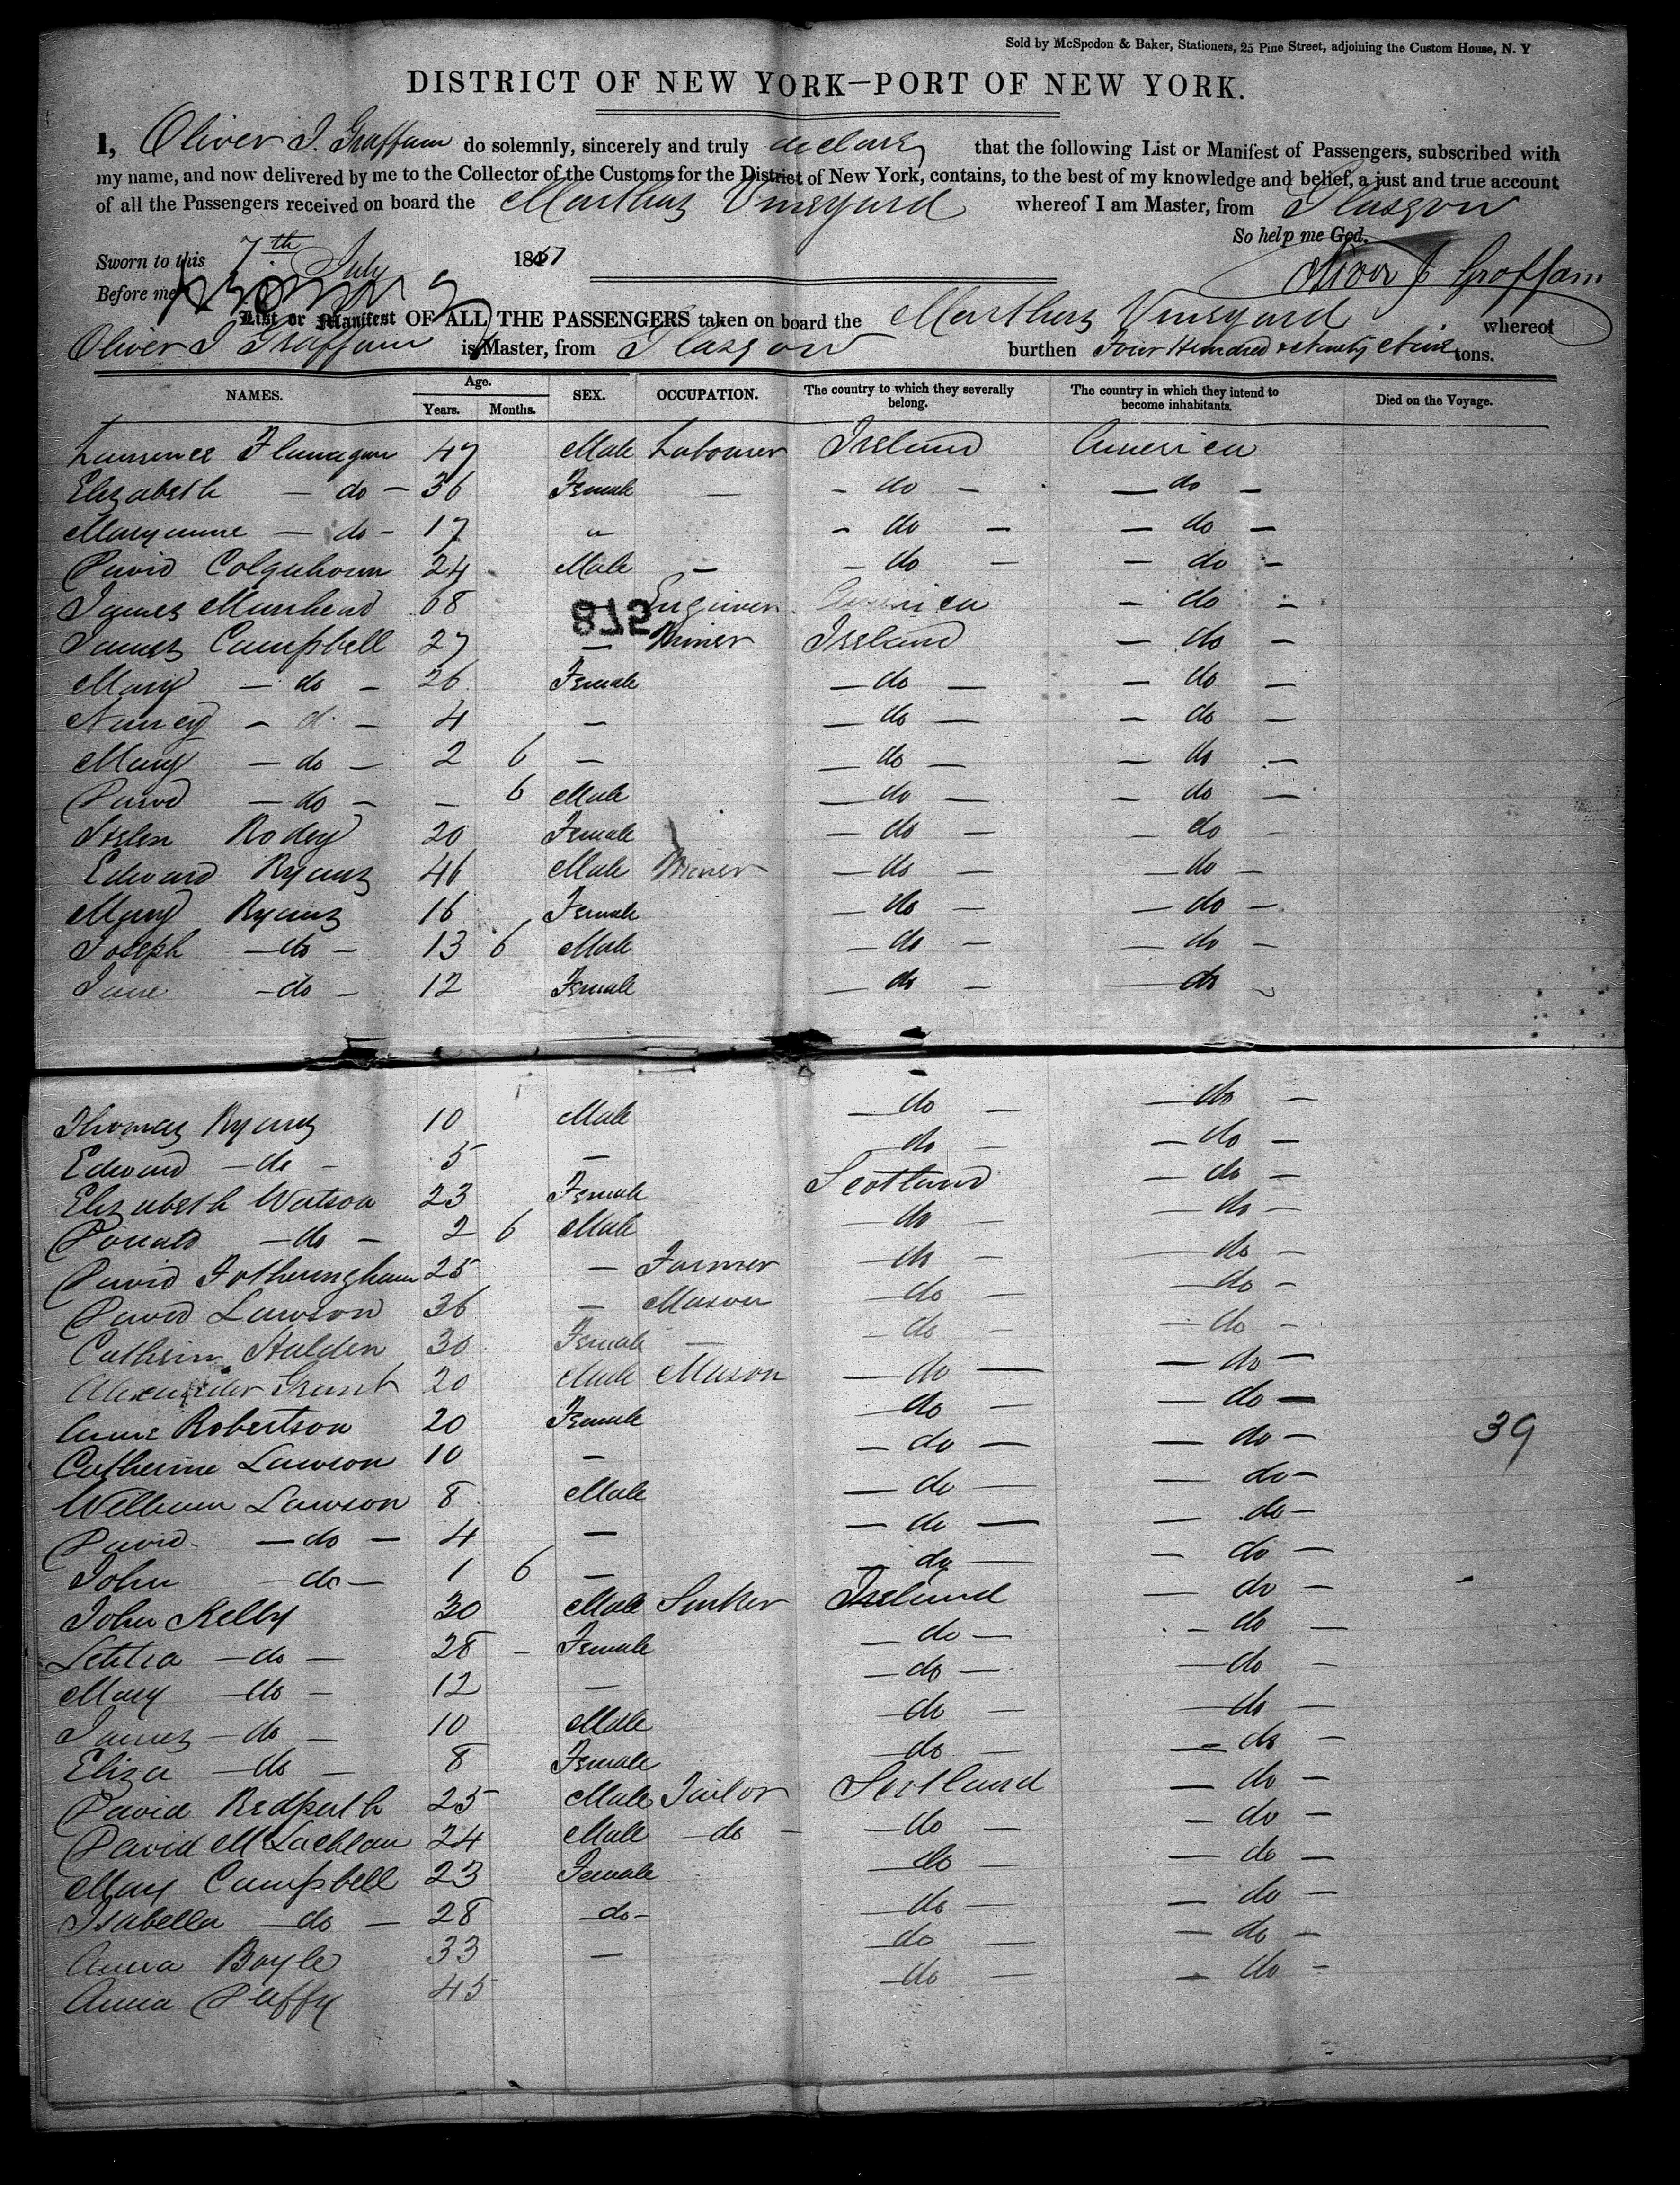 Sold by McSpedon & Baker, Stationers, 25 Pine Street, adjoining the Custom House, N. Y
DISTRICT OF NEW YORK—PORT OF NEW YORK.
I, Oliver J. Graffam do solemnly, sincerely and truly declare that the following List or Manifest of Passengers, subscribed with
my name, and now delivered by me to the Collector of the Customs for the District of New York, contains, to the best of my knowledge and belief, a just and true account
of all the Passengers received on board the Marthas Vineyard whereof I am Master, from Glasgow
So help me God.
Sworn to this 7th July 1857
Oliver J Graffam
Before me
List or Manifest OF ALL THE PASSENGERS taken on board the Marthas Vineyard whereof
Oliver J Graffam is Master, from Glasgow burthen Four Hundred & Ninety Nine tons.
NAMES. Age. Years. Months. SEX. OCCUPATION. The country to which they severally belong. The country in which they intend to become inhabitants. Died on the Voyage.
Laurence Flanagan 47 Male Labourer Ireland America
Elizabeth — do — 36 Female — — do — — do —
Maryanne — do — 17 " — do — — do —
David Colquhoun 24 Male — — do — — do —
James Muirhead 68 Engineer America — do —
8725
James Campbell 27 — Miner Ireland — do —
Mary — do — 26 Female — do — — do —
Nancy — d. — 4 — — do — — do —
Mary — do — 2 6 — — do — — do —
David — do — — 6 Male — do — — do —
Helen Rodey 20 Female — do — — do —
Edward Ryans 46 Male Miner — do — — do —
Mary Ryans 16 Female — do — — do —
Joseph — do — 13 6 Male — do — — do —
Jane — do — 12 Female — do — — do
Thomas Ryans 10 Male — do — — do —
Edward — do — 5 — — do — — do —
Elizabeth Watson 23 Female Scotland — do —
Donald — do — 2 6 Male — do — — do —
David Fotheringham 25 — Farmer — do — — do —
David Lawson 36 — Mason — do — — do —
Catherin Halden 30 Female — — do — — do —
Alexander Grant 20 Male Mason — do — — do —
Anne Robertson 20 Female — do — — do —
Catherine Lawson 10 — — do — — do —
39
William Lawson 8 Male — do — — do —
David — do — 4 — — do — — do —
John — do — 1 6 — — do — — do —
John Kelly 30 Male Sinker Ireland — do —
Letitia — do — 28 — Female — do — — do —
Mary — do — 12 — — do — — do —
James — do — 10 Male — do — — do —
Eliza — do — 8 Female — do — — do —
David Redpath 25 Male Tailor Scotland — do —
David McLachlan 24 Male — do — — do — — do —
Mary Campbell 23 Female — do — — do —
Isabella — do — 28 — do — — do — — do —
Anna Boyle 33 — — do — — do —
Anna Duffy 45 — do — — do —